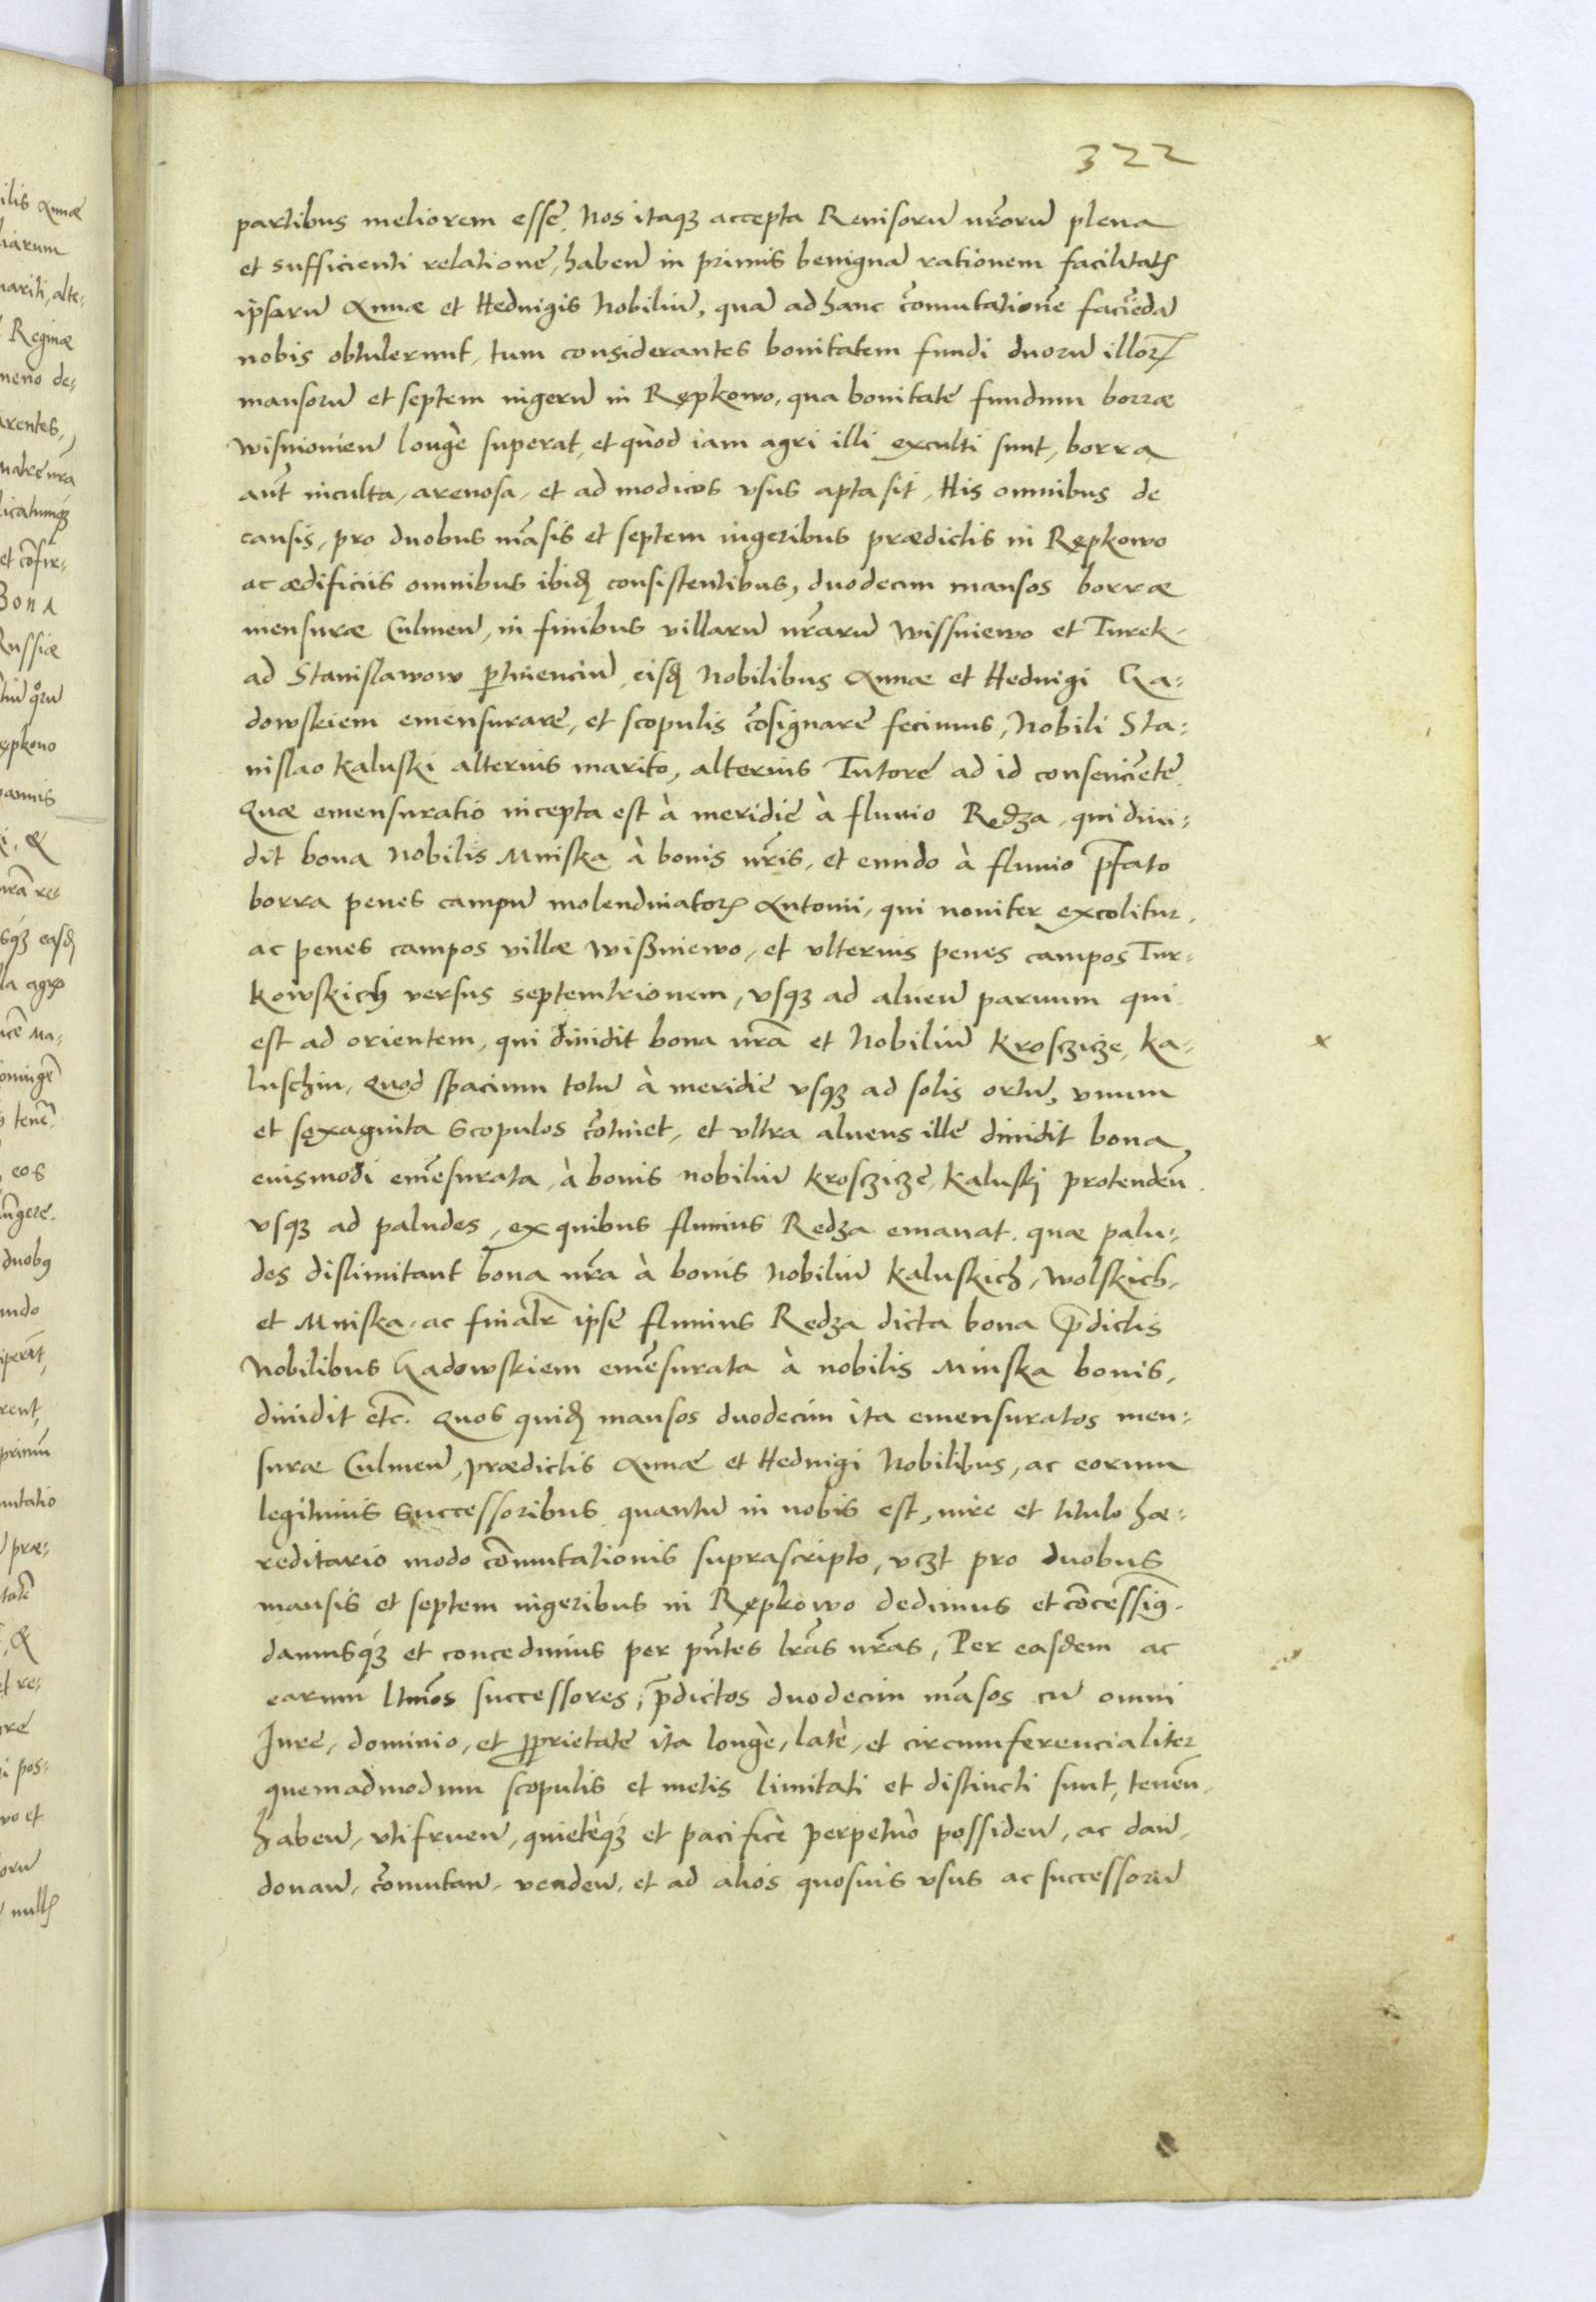 322
partibus meliorem esse. Nos itaqȝ accepta Reuisorū nr̄orū plena
et sufficienti relatione, haben̄ in primis benignā rationem facilitatꝭ
ipsarū Annæ et Heduigis Nobiliū, quā ad hanc cōmutationē faciēdā
nobis obtulerunt, tum considerantes bonitatem fundi duorū illorꝝ
mansorū et septem iugerū in Rępkowo, qua bonitate fundum borræ
Wisnionien̄ longè superat, et quòd iam agri illi exculti sunt, borra
aūt inculta, arenosa, et ad modicos vsus apta sit, His omnibus de
causis, pro duobus māsis et septem iugeribus prædictis in Rępkowo
ac ædificiis omnibus ibidꝫ consistentibus, duodecim mansos borræ
mensuræ Culmen̄, in finibus villarū nr̄arū Wissniewo et Turek
ad Stanislawow ꝑtinenciū, eisdꝫ Nobilibus Annæ et Heduigi Ga⸗
dowskiem emensurare, et scopulis cōsignare fecimus, Nobili Sta⸗
nislao Kaluski alterius marito, alterius Tutore ad id consenciēte.
Quæ emensuratio incepta est à meridie à fluuio Redza, qui diui⸗
dit bona Nobilis Mniska à bonis nr̄is, et eundo à fluuio p̄fato
borra penes campū molendinatorꝭ Antonii, qui nouiter excolitur,
ac penes campos villæ Wißniewo, et vlterius penes campos Tur⸗
kowskich versus septemtrionem, vsqȝ ad alueū paruum qui
est ad orientem, qui diuidit bona nrā et Nobiliū Krosczicze, Ka⸗
luschin, Quod spacium totū à meridie vsqȝ ad solis ortū, vnum
et sexaginta Scopulos cōtinet, et vltra alueus ille diuidit bona
euismodi emēsurata, à bonis nobiliū Krosczicze, Kaluskj protendēn
vsqȝ ad paludes, ex quibus fluuius Redza emanat. quæ palu⸗
des dislimitant bona nr̄a à bonis Nobiliū Kaluskich, Wolskich,
et Mniska, ac finalr̄ ipse fluuius Redza dicta bona p̄dictis
Nobilibus Gadowskiem emēsurata à nobilis Mniska bonis,
diuidit etc̄. Quos quidꝫ mansos duodecim ita emensuratos men⸗
suræ Culmen̄, prædictis Annæ et Heduigi Nobilibus, ac eorum
legitimis Successoribus quantū in nobis est, iure et titulo hæ⸗
reditario modo cōmutationis suprascripto, vczt pro duobus
mansis et septem iugeribus in Rępkowo dedimus et cōcessimꝰ.
damusqȝ et concedimus per pn̄tes lrās nrās, Per easdem ac
earum ltīmos successores, p̄dictos duodecim māsos cū omni
Jure, dominio, et ꝓprietate ita longè, latè, et circumferencialiter
quemadmodum scopulis et metis limitati et distincti sunt, tenēn
haben̄, vtifruen̄, quietèqȝ et pacificè perpetuò possiden̄, ac dan̄,
donan̄, cōmutan̄, venden̄, et ad alios quosuis vsus ac successorū